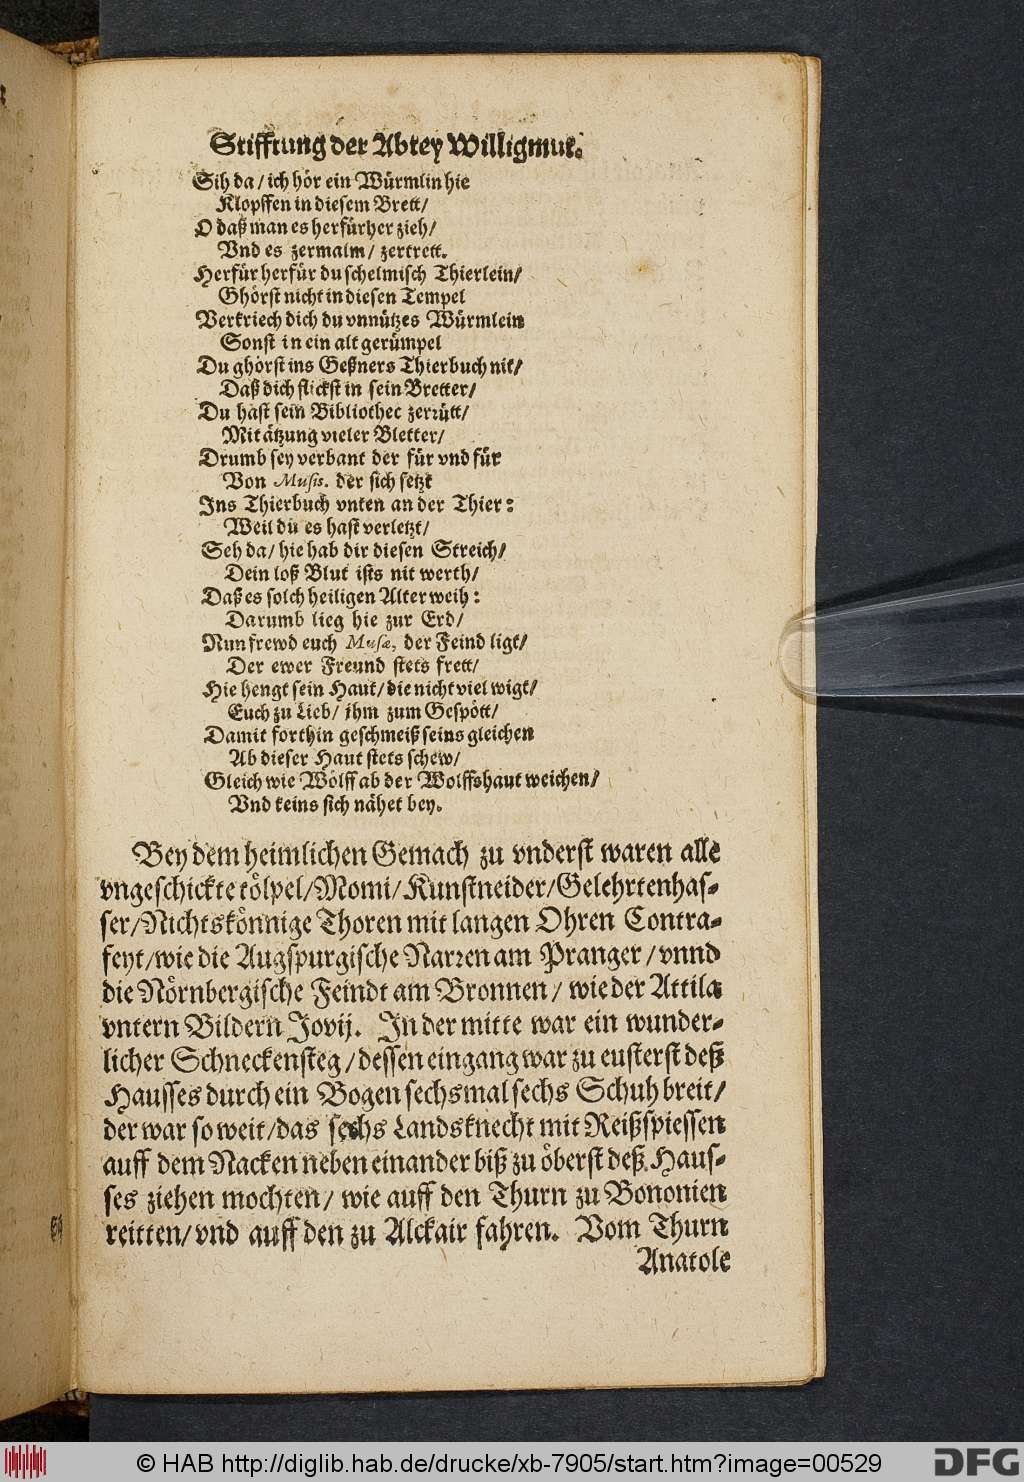 Stifftung der Abtey Willigmut.
Sih da / ich hör ein Würmlin hie
Klopffen in diesem Brett /
O daß man es herfürher zieh /
Vnd es zermalm / zertrett.
Herfür herfür du schelmisch Thierlein /
Ghörst nicht in diesen Tempel
Verkriech dich du vnnützes Würmlein
Sonst in ein alt gerümpel
Du ghörst ins Geßners Thierbuch nit /
Daß dich flickst in sein Bretter /
Du hast sein Bibliothec zerrütt /
Mit ätzung vieler Bletter /
Drumb sey verbant der für vnd für
Von Musis. der sich setzt
Ins Thierbuch vnten an der Thier:
Weil du es hast verletzt /
Seh da / hie hab dir diesen Streich /
Dein loß Blut ists nit werth /
Daß es solch heiligen Alter weih:
Darumb lieg hie zur Erd /
Nun frewd euch Musæ, der Feind ligt /
Der ewer Freund stets frett /
Hie hengt sein Haut / die nicht viel wigt /
Euch zu Lieb / ihm zum Gespött /
Damit forthin geschmeiß seins gleichen
Ab dieser Haut stets schew /
Gleich wie Wölff ab der Wolffshaut weichen /
Vnd keins sich nähet bey.
Bey dem heimlichen Gemach zu vnderst waren alle
vngeschickte tölpel / Momi / Kunstneider / Gelehrtenhas-
ser / Nichtskönnige Thoren mit langen Ohren Contra-
feyt / wie die Augspurgische Narren am Pranger / vnnd
die Nörnbergische Feindt am Bronnen / wie der Attila
vntern Bildern Jovij. In der mitte war ein wunder-
licher Schneckensteg / dessen eingang war zu eusterst deß
Hausses durch ein Bogen sechsmal sechs Schuh breit /
der war so weit / das sechs Landsknecht mit Reißspiessen
auff dem Nacken neben einander biß zu öberst deß Haus-
ses ziehen mochten / wie auff den Thurn zu Bononien
reitten / vnd auff den zu Alckair fahren. Vom Thurn
Anatole
© HAB http://diglib.hab.de/drucke/xb-7905/start.htm?image=00529
DFG